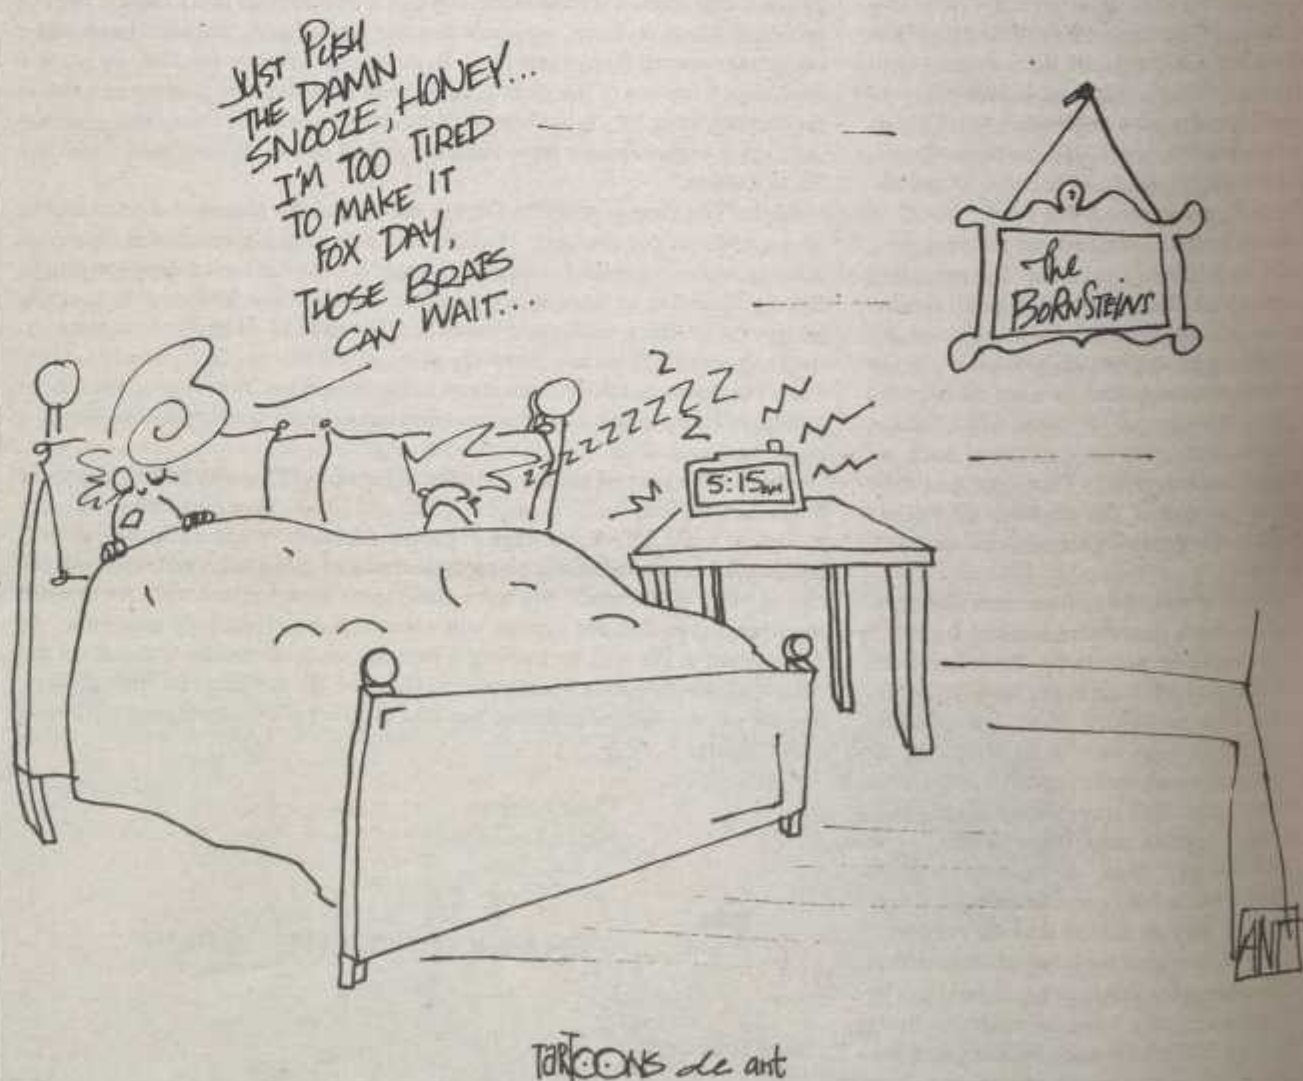 JUST PUSH
THE DAMN
SNOOZE, HONEY...
I'M TOO TIRED
TO MAKE IT
FOX DAY,
THOSE BRATS
CAN WAIT...
The
BORNSTEINS
z z z z z z z z z z
5:15am
ANT
TARTOONS de ant